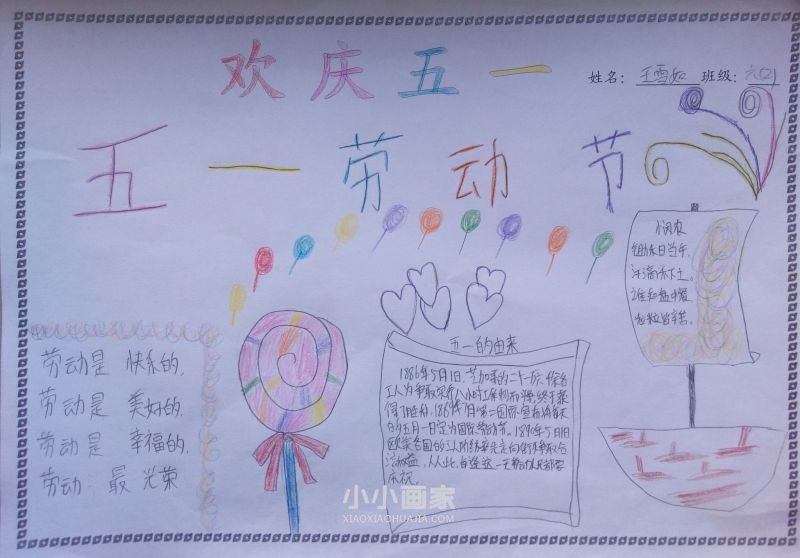 欢庆五一
姓名：王雪如 班级：六(2)
五一劳动节
悯农
锄禾日当午，
汗滴禾下土。
谁知盘中餐
粒粒皆辛苦。
五一的由来
1886年5月1日，芝加哥的二十一万
工人为争取实行八小时工作制而
得了胜利。年7月第二国际宣布将每年
的五月一日定为国际劳动节。1890年5月1日
欧美各国的工人阶级率先走向街头
从此，自这
庆祝
劳动是 快乐的，
劳动是 美好的，
劳动是 幸福的，
劳动：最 光荣
小小画家
XIAOXIAOHUAJIA.COM